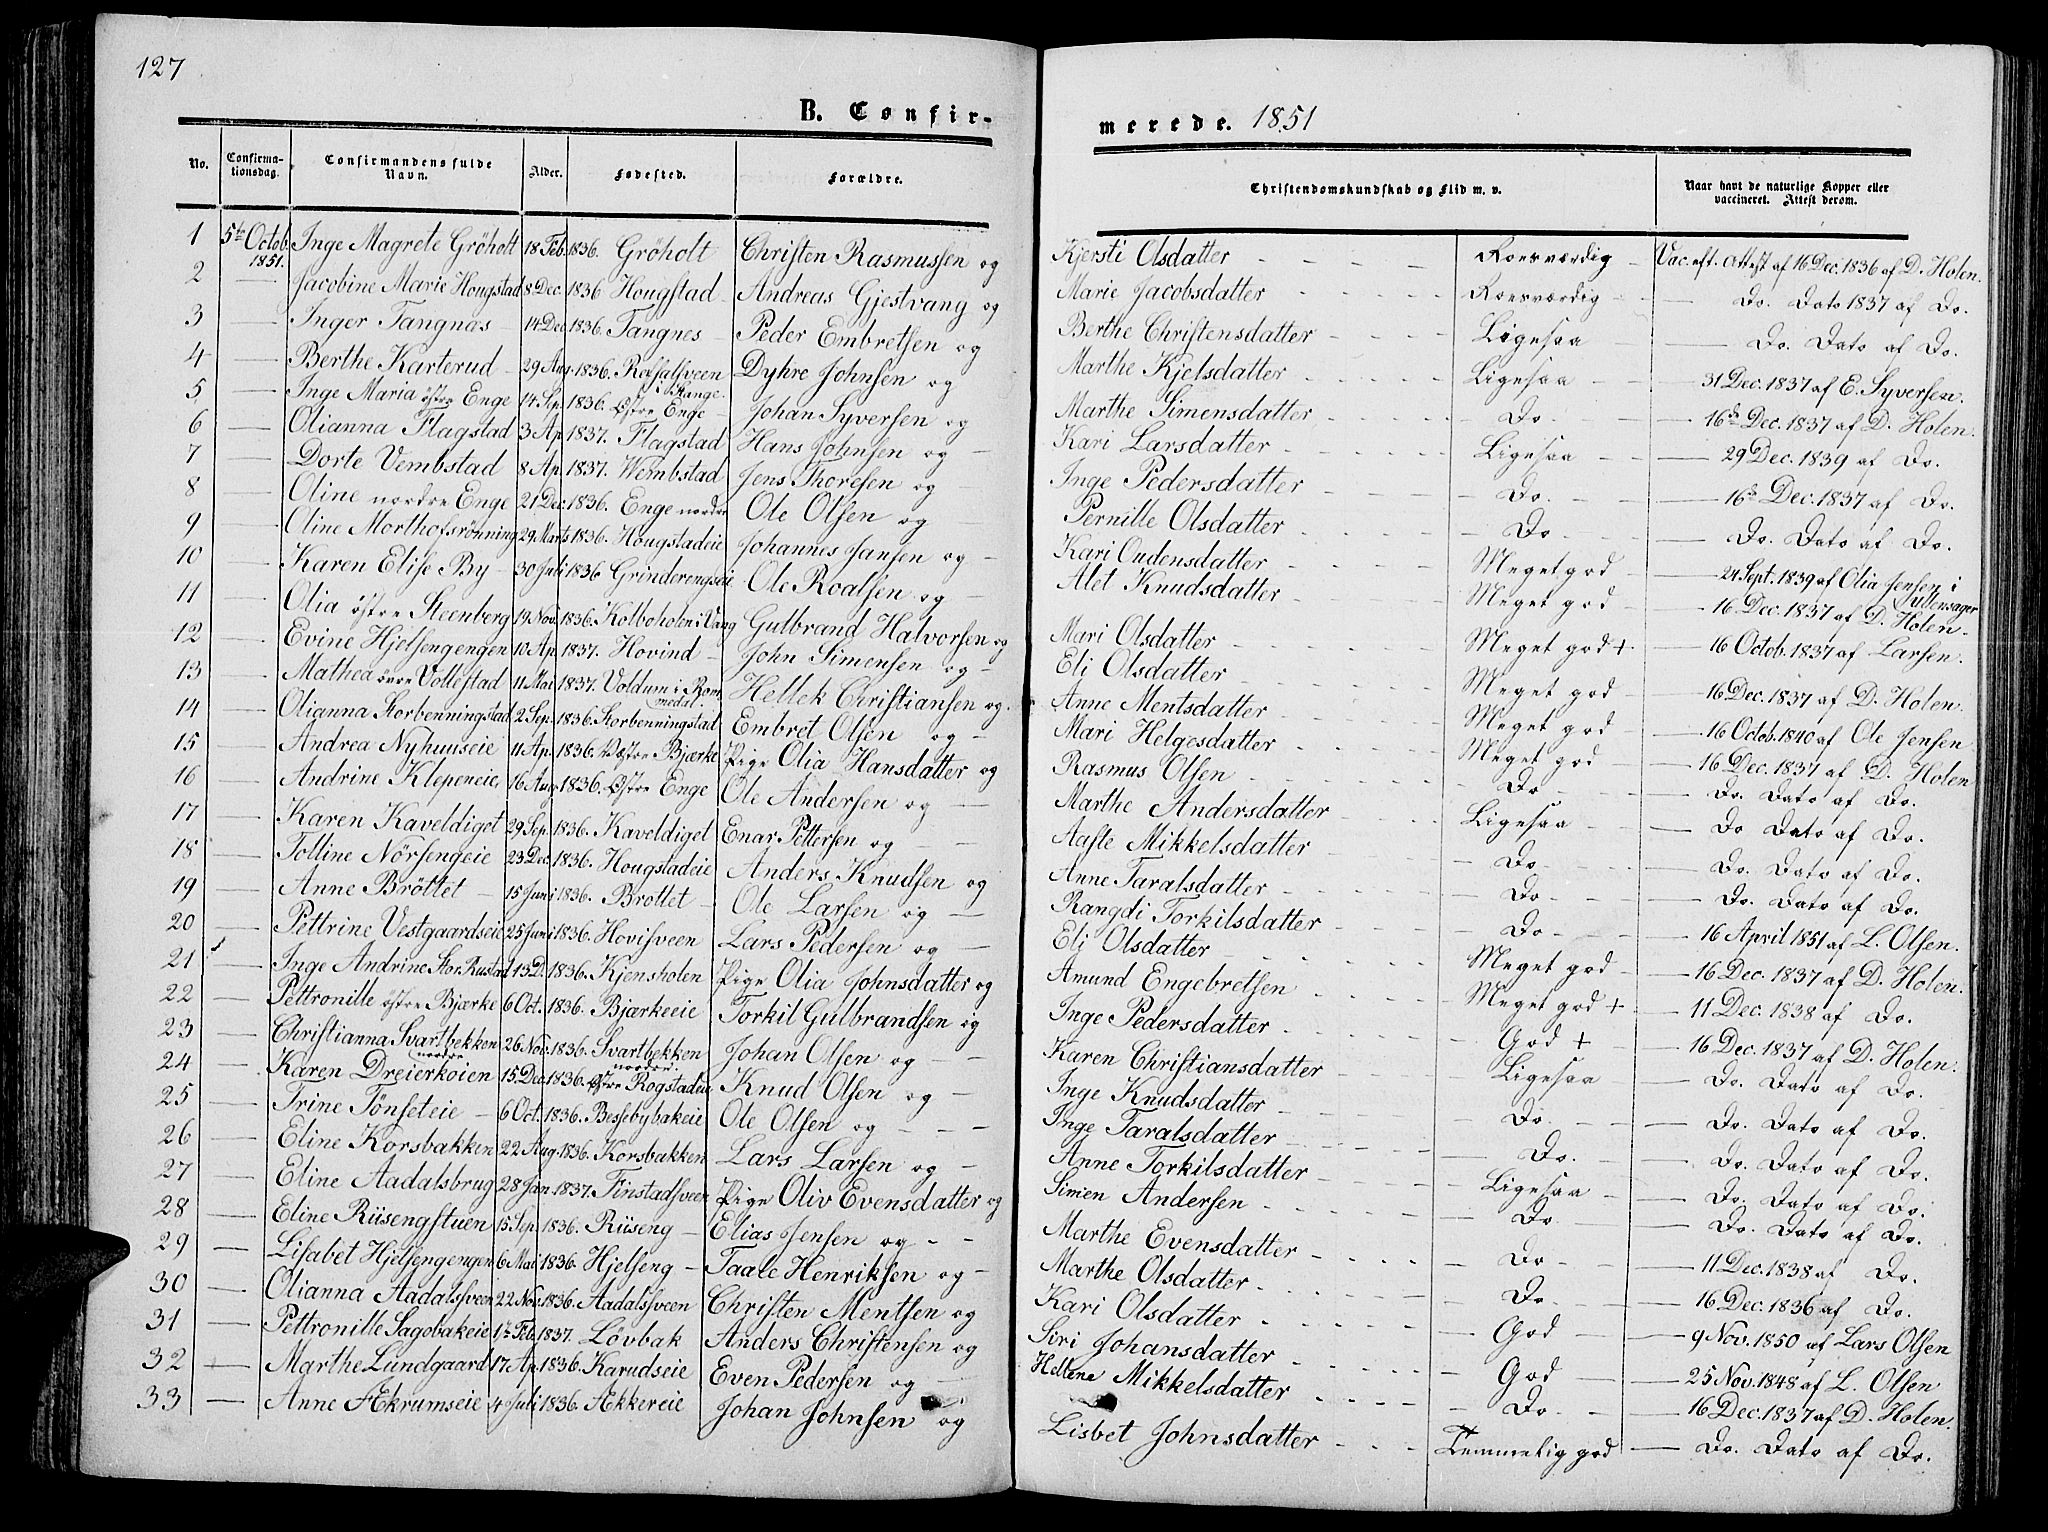 127
B. Confir-
merede. 1851
No. | Confirma-tionsdag. | Confirmandens fulde Navn. | Alder. | Fødested. | Forældre. | Christendomskundskab og Flid m. v. | Naar havt de naturlige Kopper eller vaccineret. Attest derom.
1 | 5te Octob. 1851. | Inge Magrete Gröholt | 18 Feb. 1836. | Gröholt | Christen Rasmussen og Kjersti Olsdatter | Roesværdig | Vac. eft. Attest af 16 Dec. 1836 af D. Holen.
2 | — | Jacobine Marie Hougstad | 8 Dec. 1836 | Hougstad | Andreas Gjestvang og Marie Jacobsdatter | Roesværdig | Do. Dato 1837 af Do.
3 | — | Inger Tangnas | 14 Dec. 1836. | Tangnes | Peder Embretsen og Berthe Christensdatter | Ligesaa | Do. Dato af Do.
4 | — | Berthe Karterud | 29 Aug. 1836. | Rosalsveen i Stange. | Dyhre Johnsen og Marthe Kjelsdatter | Ligesaa | 31 Dec. 1837 af E. Syversen.
5 | — | Inge Maria östre Enge | 14 Sep. 1836. | Østre Enge | Johan Syversen og Marthe Simensdatter | Do. | 16de Dec. 1837 af D. Holen.
6 | — | Olianna Flagstad | 3 Ap. 1837. | Flagstad | Hans Johnsen og Kari Larsdatter | Ligesaa | 29 Dec. 1839 af Do.
7 | — | Dorte Vembstad | 8 Ap. 1837. | Wembstad | Jens Thoresen og Inge Pedersdatter | Do. | 16de Dec. 1837 af Do.
8 | — | Oline nordre Enge | 21 Dec. 1836. | Enge nordre | Ole Olsen og Pernille Olsdatter | Do | Do. Dato af Do.
9 | — | Oline Morthofsrönning | 29 Marts 1836. | Hougstadeie | Johannes Jansen og Kari Oudensdatter | Meget god | 24 Sept. 1839 af Olia Jensen i
10 | — | Karen Elise By | 30 Juli 1836 | Grinderengseie | Ole Roalsen og Alet Knudsdatter | Meget god | 16 Dec. 1837 af D. Holen.
11 | — | Olia östre Steenberg | 19 Nov. 1836. | Kolboholen i Vang | Gulbrand Halvorsen og Mari Olsdatter | Meget god + | 16 Octob. 1837 af Larsen.
12 | — | Evine Hjelsengengen | 10 Ap. 1837. | Hovind | John Simensen og Eli Olsdatter | Meget god | 16 Dec. 1837 af D. Holen.
13 | — | Mathea övre Vollestad | 11 Mai 1837. | Voldum i Rommedal. | Hellek Christiansen og Anne Mentsdatter | Meget god | 16 Octob. 1840 af Ole Jensen
14 | — | Olianna Storbenningstad | 2 Sep. 1836. | Storbenningstad | Embret Olsen og Mari Helgesdatter | Meget god | 16 Dec. 1837 af D. Holen
15 | — | Andrea Nyhuuseie | 11 Ap. 1836. | Væstre Bjærke | Pige Olia Hansdatter og Rasmus Olsen | Do | Do. Dato af Do.
16 | — | Andrine Klepeneie, | 16 Aug. 1836. | Østre Enge | Ole Andersen og Marthe Andersdatter | Ligesaa | Do Dato af Do.
17 | — | Karen Kaveldiget | 29 Sep. 1836. | Kaveldiget | Enar Pettersen og Aaste Mikkelsdatter | Do. | Do. Dato af Do.
18 | — | Tolline Nörsengeie | 23 Dec. 1836. | Hougstadeie | Anders Knudsen og Anne Taralsdatter | Do. | Do. Dato af Do.
19 | — | Anne Bröttet | 15 Juni 1836. | Brottet | Ole Larsen og Rangdi Torkilsdatter | Do. | 16 April 1851 af L. Olsen.
20 | — | Pettrine Vestgaardseie | 25 Juni 1836. | Hovisveen | Lars Pedersen og Eli Olsdatter | Meget god | 16 Dec. 1837 af D. Holen.
21 | — | Inge Andrine Stor Rustad | 13 D. 1836. | Kjensholen | Pige Olia Johnsdatter og Amund Engebretsen | Meget god + | 11 Dec. 1838 af Do.
22 | — | Pettronille östre Bjærke | 6 Oct. 1836. | Bjærkeeie | Torkil Gulbrandsen og Inge Pedersdatter | God + | 16 Dec. 1837 af D. Holen.
23 | — | Christianna Svartbekken | 26 Nov. 1836. | Svartbekken | Johan Olsen og Karen Christiansdatter | Ligesaa | Do. Dato af Do.
24 | — | Karen nordre Dreierkoien | 15 Dec. 1836. | Østre nordre Rogstadeie | Knud Olsen og Inge Knudsdatter | Do. | Do. Dato af Do.
25 | — | Trine Tönseteie | 6 Oct. 1836. | Bessebybakeie | Ole Olsen og Inge Taralsdatter | Do. | Do. Dato af Do.
26 | — | Eline Korsbakken | 22 Aug. 1836. | Korsbakken | Lars Larsen og Anne Torkilsdatter | Ligesaa | Do. Dato af Do.
27 | — | Eline Aadalsbrug | 28 Jan. 1837. | Finstadsveen | Pige Oliv Evensdatter og Simen Andersen | Do | Do. Dato af Do.
28 | — | Eline Riisengstuen | 15 Sep. 1836. | Riiseng | Elias Jensen og Marthe Evensdatter | Do | 11 Dec. 1838 af Do.
29 | — | Lisabet Hjelsengengen | 6 Mai 1836. | Hjelseng | Taale Henriksen og Marthe Olsdatter | Do | 16 Dec. 1836 af Do.
30 | — | Olianna Aadalsveen | 22 Nov. 1836. | Aadalsveen | Christen Mentsen og Kari Olsdatter | God | 9 Nov. 1850 af Lars Olsen
31 | — | Pettronille Sagobakeie | 17 Feb. 1837. | Lövbak | Anders Christensen og Siri Johansdatter | God | 25 Nov. 1848 af L. Olsen
32 | — | Marthe Lundgaard | 17 Ap. 1836. | Karudseie | Even Pedersen og Hellene Mikkelsdatter | Do | 16 Dec. 1837 af D. Holen.
33 | — | Anne Ækrumseie | 4 Juli 1836. | Ækkereie | Johan Johnsen og Lisbet Johnsdatter | Temmelig god | Do. Dato af Do.